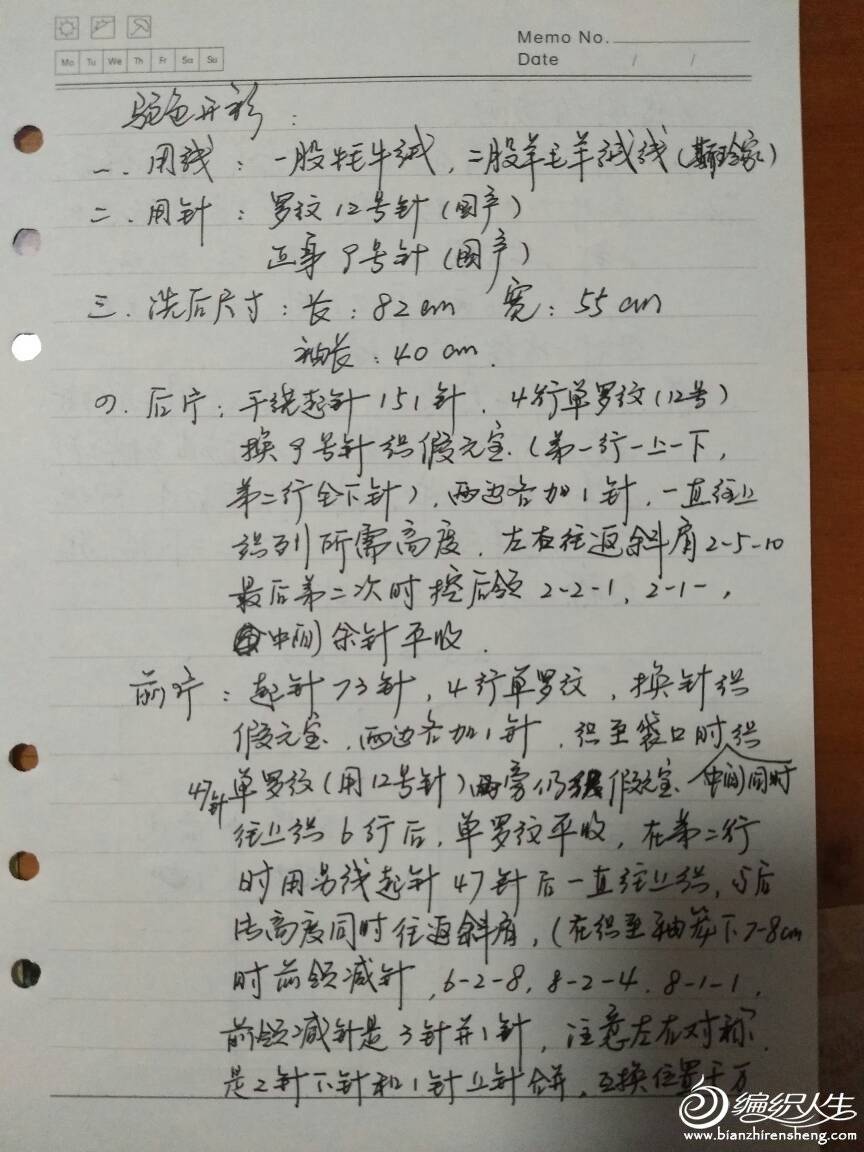 Memo No.
Mo Tu We Th Fr Sa Su
Date / /
驼色开衫:
一. 用线: 一股牦牛绒, 二股羊毛羊绒线(家)
二. 用针: 罗纹12号针(国产)
正身9号针(国产)
三. 洗后尺寸: 长: 82cm 宽: 55cm
袖长: 40cm.
四. 后片: 平绕起针151针. 4行单罗纹(12号)
换9号针织假元宝.(第一行一上一下,
第二行全下针), 两边各加1针, 一直往上
织到所需高度, 左右往返斜肩2-5-10
最后第二次时挖后领 2-2-1, 2-1-1,
中间余针平收.
前片: 起针73针, 4行单罗纹, 换针织
假元宝, 两边各加1针, 织至袋口时织
47针单罗纹(用12号针)两旁仍织假元宝. 中间同时
往上织6行后, 单罗纹平收, 在第二行
时用另线起针47针后一直往上织, 与后
片高度同时往返斜肩, (在织至袖笼下7-8cm
时前领减针, 6-2-8, 8-2-4, 8-1-1,
前领减针是3针并1针, 注意左右对称.
是2针下针和1针上针合并, 互换位置千万
编织人生
www.bianzhirensheng.com